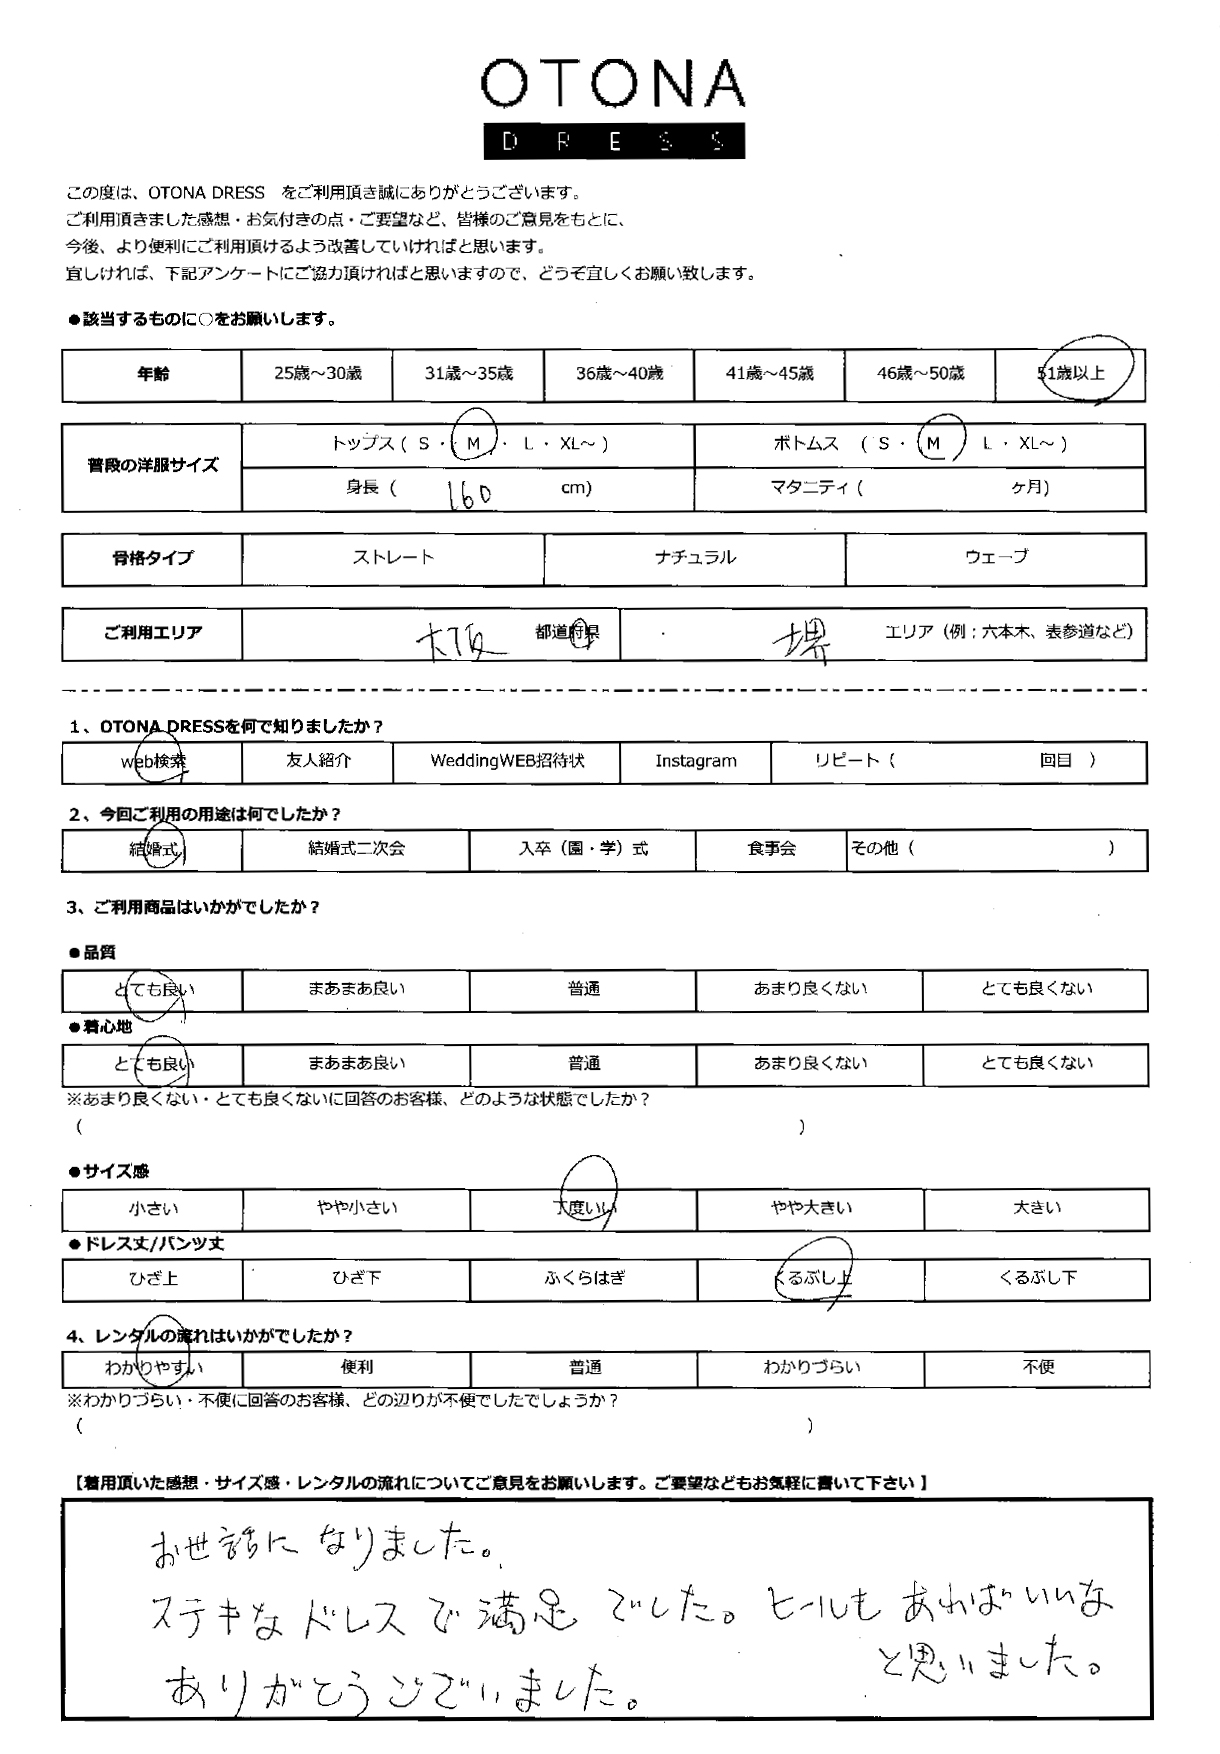 OTONA
DRESS
この度は、OTONA DRESS をご利用頂き誠にありがとうございます。
ご利用頂きました感想・お気付きの点・ご要望など、皆様のご意見をもとに、
今後、より便利にご利用頂けるよう改善していければと思います。
宜しければ、下記アンケートにご協力頂ければと思いますので、どうぞ宜しくお願い致します。
●該当するものに○をお願いします。
年齢 25歳～30歳 31歳～35歳 36歳～40歳 41歳～45歳 46歳～50歳 51歳以上
普段の洋服サイズ トップス ( S ・ M ・ L ・ XL～ ) ボトムス ( S ・ M L ・ XL～ )
身長 ( 160 cm) マタニティ ( ヶ月)
骨格タイプ ストレート ナチュラル ウェーブ
ご利用エリア 大阪 都道府県 堺 エリア（例：六本木、表参道など）
1、OTONA DRESSを何で知りましたか？
web検索 友人紹介 WeddingWEB招待状 Instagram リピート（ 回目 ）
2、今回ご利用の用途は何でしたか？
結婚式 結婚式二次会 入卒（園・学）式 食事会 その他（ ）
3、ご利用商品はいかがでしたか？
●品質
とても良い まあまあ良い 普通 あまり良くない とても良くない
●着心地
とても良い まあまあ良い 普通 あまり良くない とても良くない
※あまり良くない・とても良くないに回答のお客様、どのような状態でしたか？
（ ）
●サイズ感
小さい やや小さい 丁度いい やや大きい 大きい
●ドレス丈/パンツ丈
ひざ上 ひざ下 ふくらはぎ くるぶし上 くるぶし下
4、レンタルの流れはいかがでしたか？
わかりやすい 便利 普通 わかりづらい 不便
※わかりづらい・不便に回答のお客様、どの辺りが不便でしたでしょうか？
（ ）
【着用頂いた感想・サイズ感・レンタルの流れについてご意見をお願いします。ご要望などもお気軽に書いて下さい 】
お世話になりました。
ステキなドレスで満足でした。ヒールもあればいいな
と思いました。
ありがとうございました。